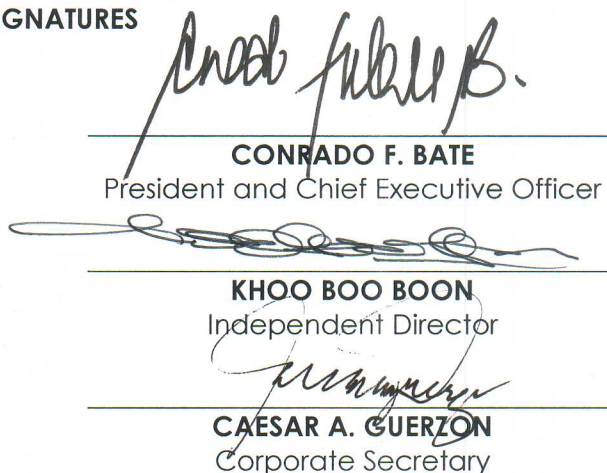 GNATURES
CONRADO F. BATE
President and Chief Executive Officer
KHOO BOO BOON
Independent Director
CAESAR A. GUERZON
Corporate Secretary